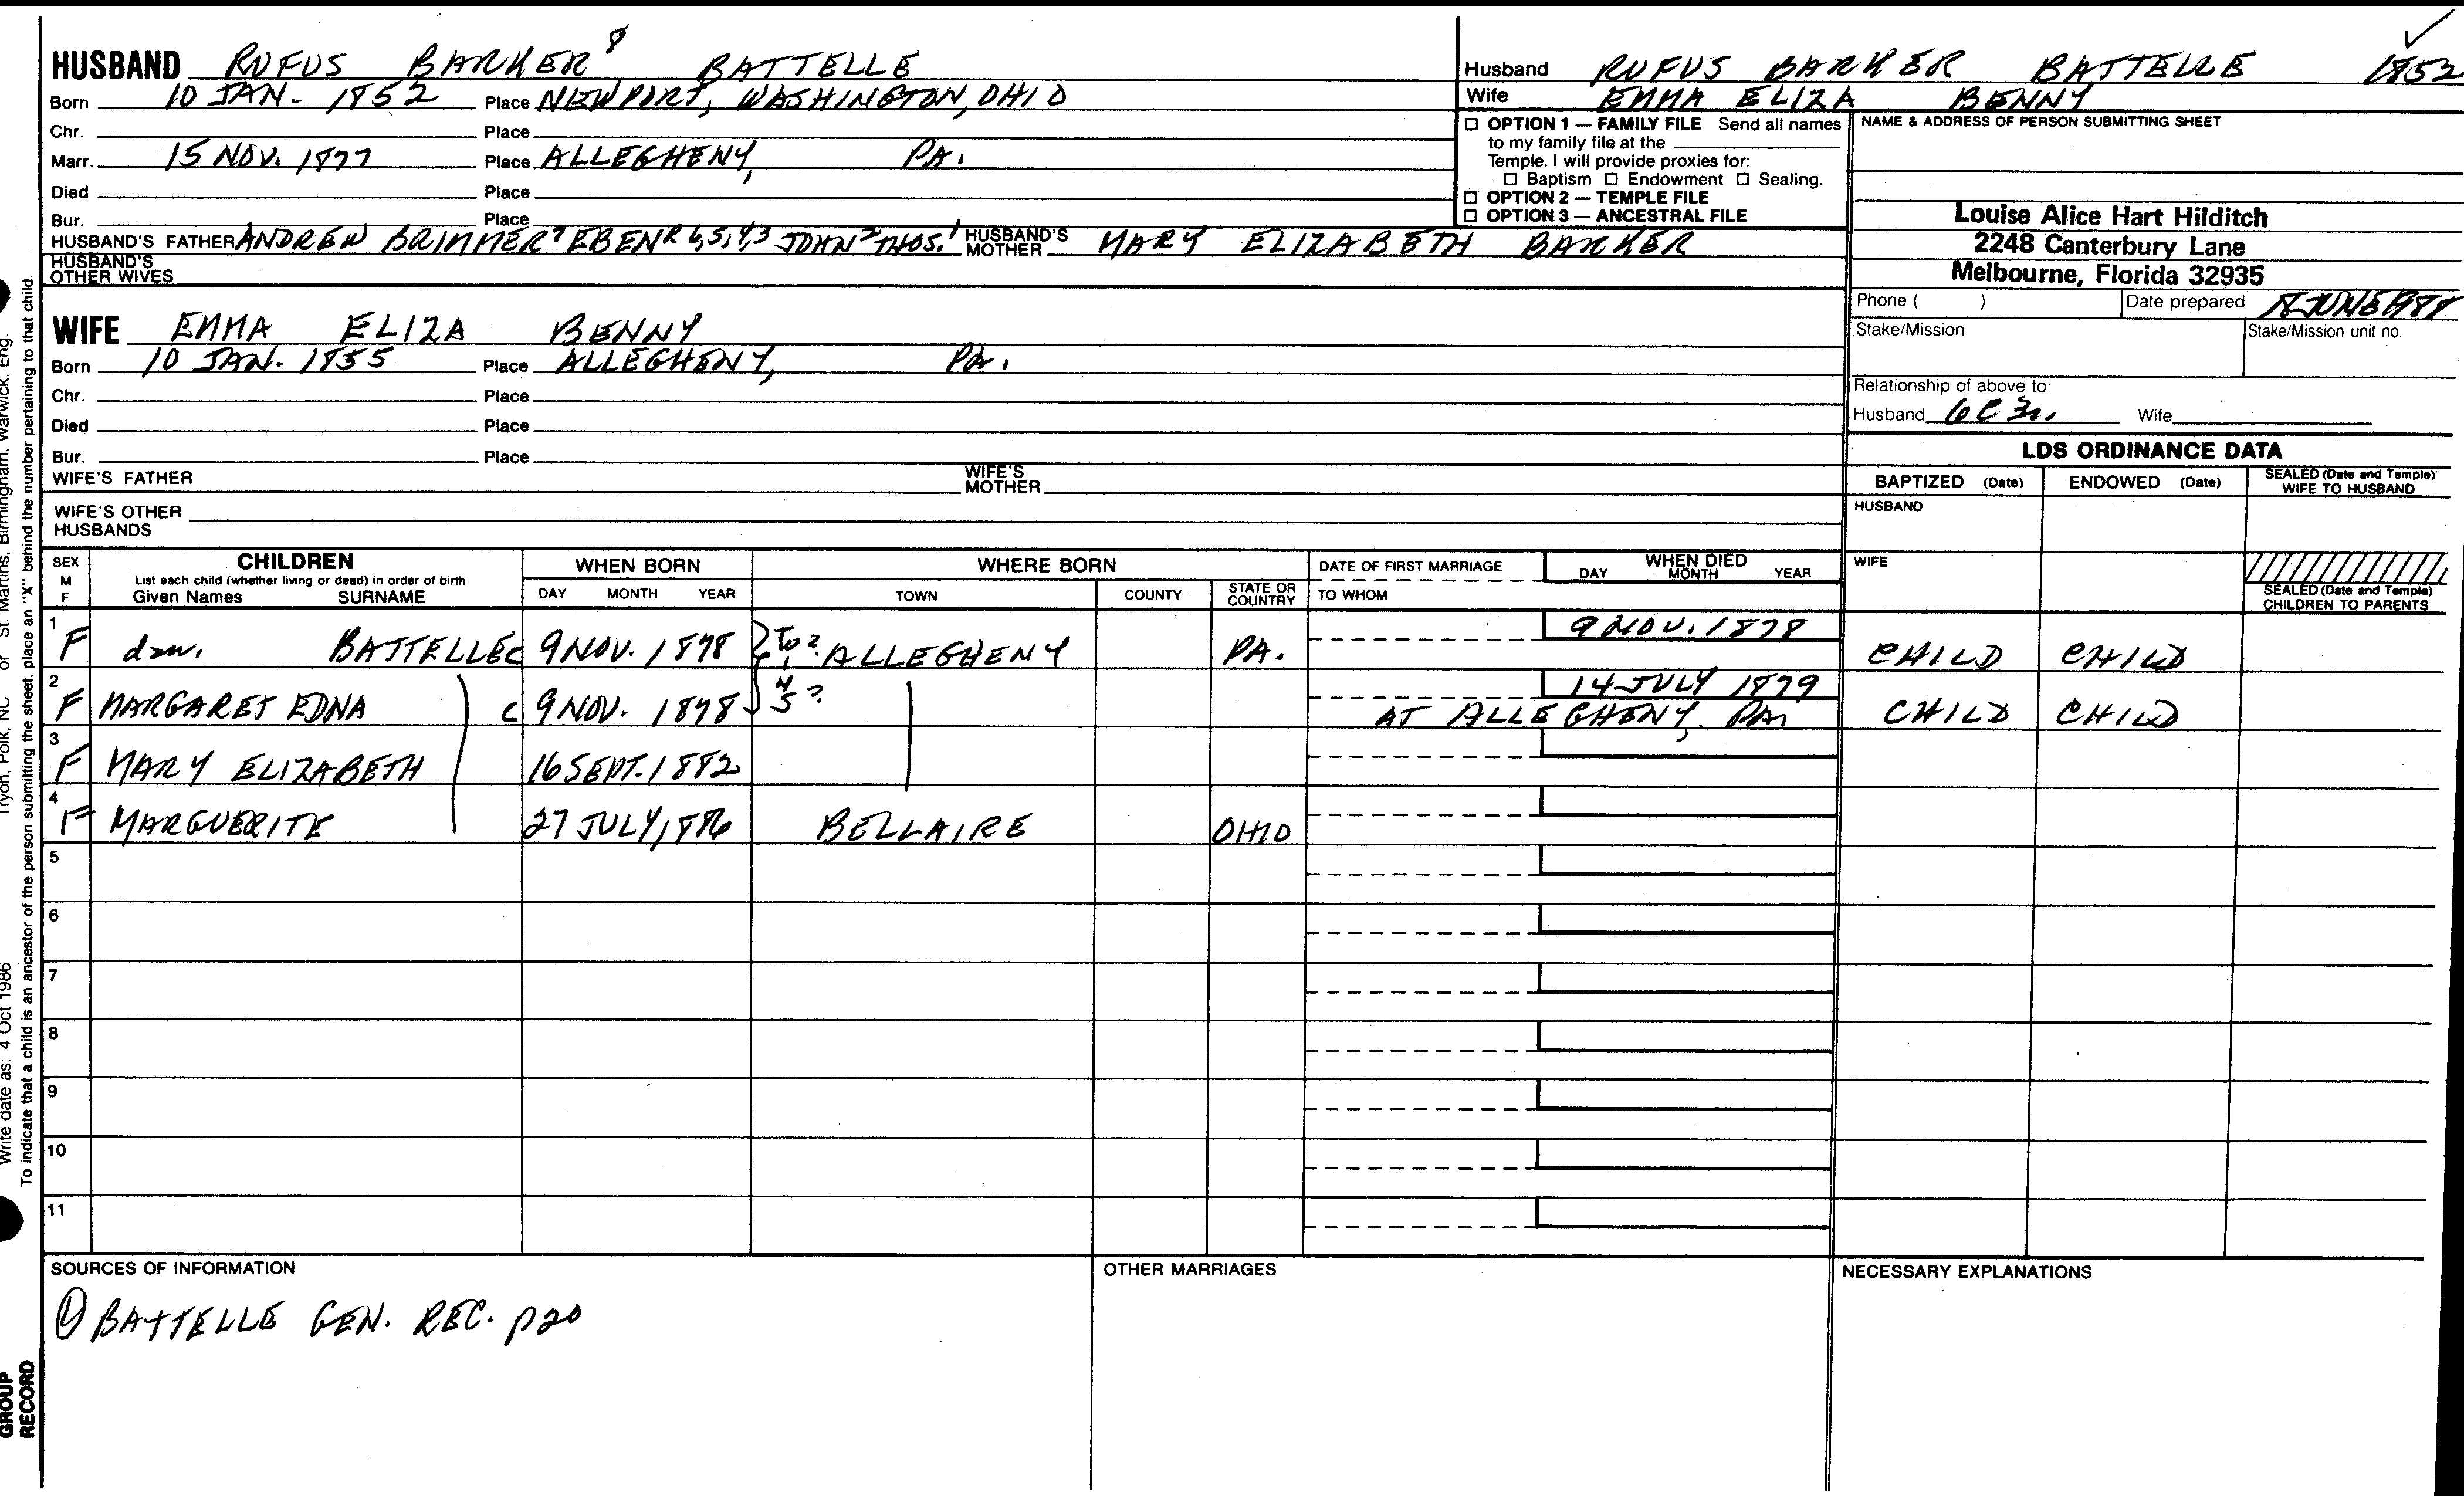 HUSBAND RUFUS BARKER 8 BATTELLE
Born 10 JAN. 1852 Place NEWPORT, WASHINGTON, OHIO
Chr. Place
Marr. 15 NOV. 1877 Place ALLEGHENY, PA.
Died Place
Bur. Place
HUSBAND'S FATHER ANDREW BRIMMER 7 EBENR 6,5,4,3 JOHN 2 THOS. 1 HUSBAND'S MOTHER MARY ELIZABETH BARKER
HUSBAND'S OTHER WIVES
WIFE EMMA ELIZA BENNY
Born 10 JAN. 1855 Place ALLEGHENY, PA.
Chr. Place
Died Place
Bur. Place
WIFE'S FATHER WIFE'S MOTHER
WIFE'S OTHER HUSBANDS
Husband RUFUS BARKER BATTELLE 1852
Wife EMMA ELIZA BENNY
☐ OPTION 1 — FAMILY FILE Send all names
to my family file at the
Temple. I will provide proxies for:
☐ Baptism ☐ Endowment ☐ Sealing.
☐ OPTION 2 — TEMPLE FILE
☐ OPTION 3 — ANCESTRAL FILE
NAME & ADDRESS OF PERSON SUBMITTING SHEET
Louise Alice Hart Hilditch
2248 Canterbury Lane
Melbourne, Florida 32935
Phone ( ) Date prepared
Stake/Mission Stake/Mission unit no.
Relationship of above to:
Husband 6C3r. Wife
LDS ORDINANCE DATA
BAPTIZED (Date) ENDOWED (Date) SEALED (Date and Temple) WIFE TO HUSBAND
HUSBAND
WIFE
SEALED (Date and Temple) CHILDREN TO PARENTS
SEX M F
CHILDREN
List each child (whether living or dead) in order of birth
Given Names SURNAME
WHEN BORN
DAY MONTH YEAR
WHERE BORN
TOWN COUNTY STATE OR COUNTRY
DATE OF FIRST MARRIAGE
TO WHOM
WHEN DIED
DAY MONTH YEAR
1 F dau. BATTELLE c 9 NOV. 1878 ALLEGHENY PA. 9 NOV. 1878 CHILD CHILD
2 F MARGARET EDNA c 9 NOV. 1878 14 JULY 1879
AT ALLEGHENY, PA. CHILD CHILD
3 F MARY ELIZABETH 16 SEPT. 1882
4 F MARGUERITE 27 JULY, 1886 BELLAIRE OHIO
5
6
7
8
9
10
11
SOURCES OF INFORMATION
① BATTELLE GEN. REC. p20
OTHER MARRIAGES
NECESSARY EXPLANATIONS
Tryon, Polk, NC or St. Martins, Birmingham, Warwick, Eng.
Write date as: 4 Oct 1986
To indicate that a child is an ancestor of the person submitting the sheet, place an "X" behind the number pertaining to that child.
GROUP
RECORD